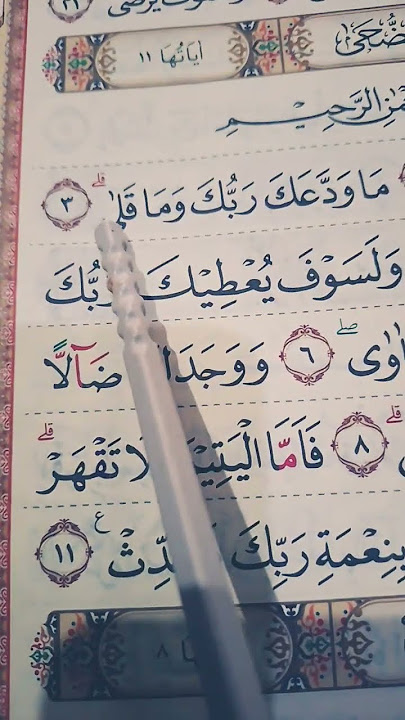 الضُّحَىٰ اٰيَاتُهَا ١١
الرَّحِيمِ
مَا وَدَّعَكَ رَبُّكَ وَمَا قَلٰى ۗ ٣
وَلَسَوْفَ يُعْطِيْكَ رَبُّكَ
٦ وَوَجَدَكَ ضَآلًّا
٨ فَاَمَّا الْيَتِيْمَ لَا تَقْهَرْ ۗ
بِنِعْمَةِ رَبِّكَ فَحَدِّثْ ١١
٨